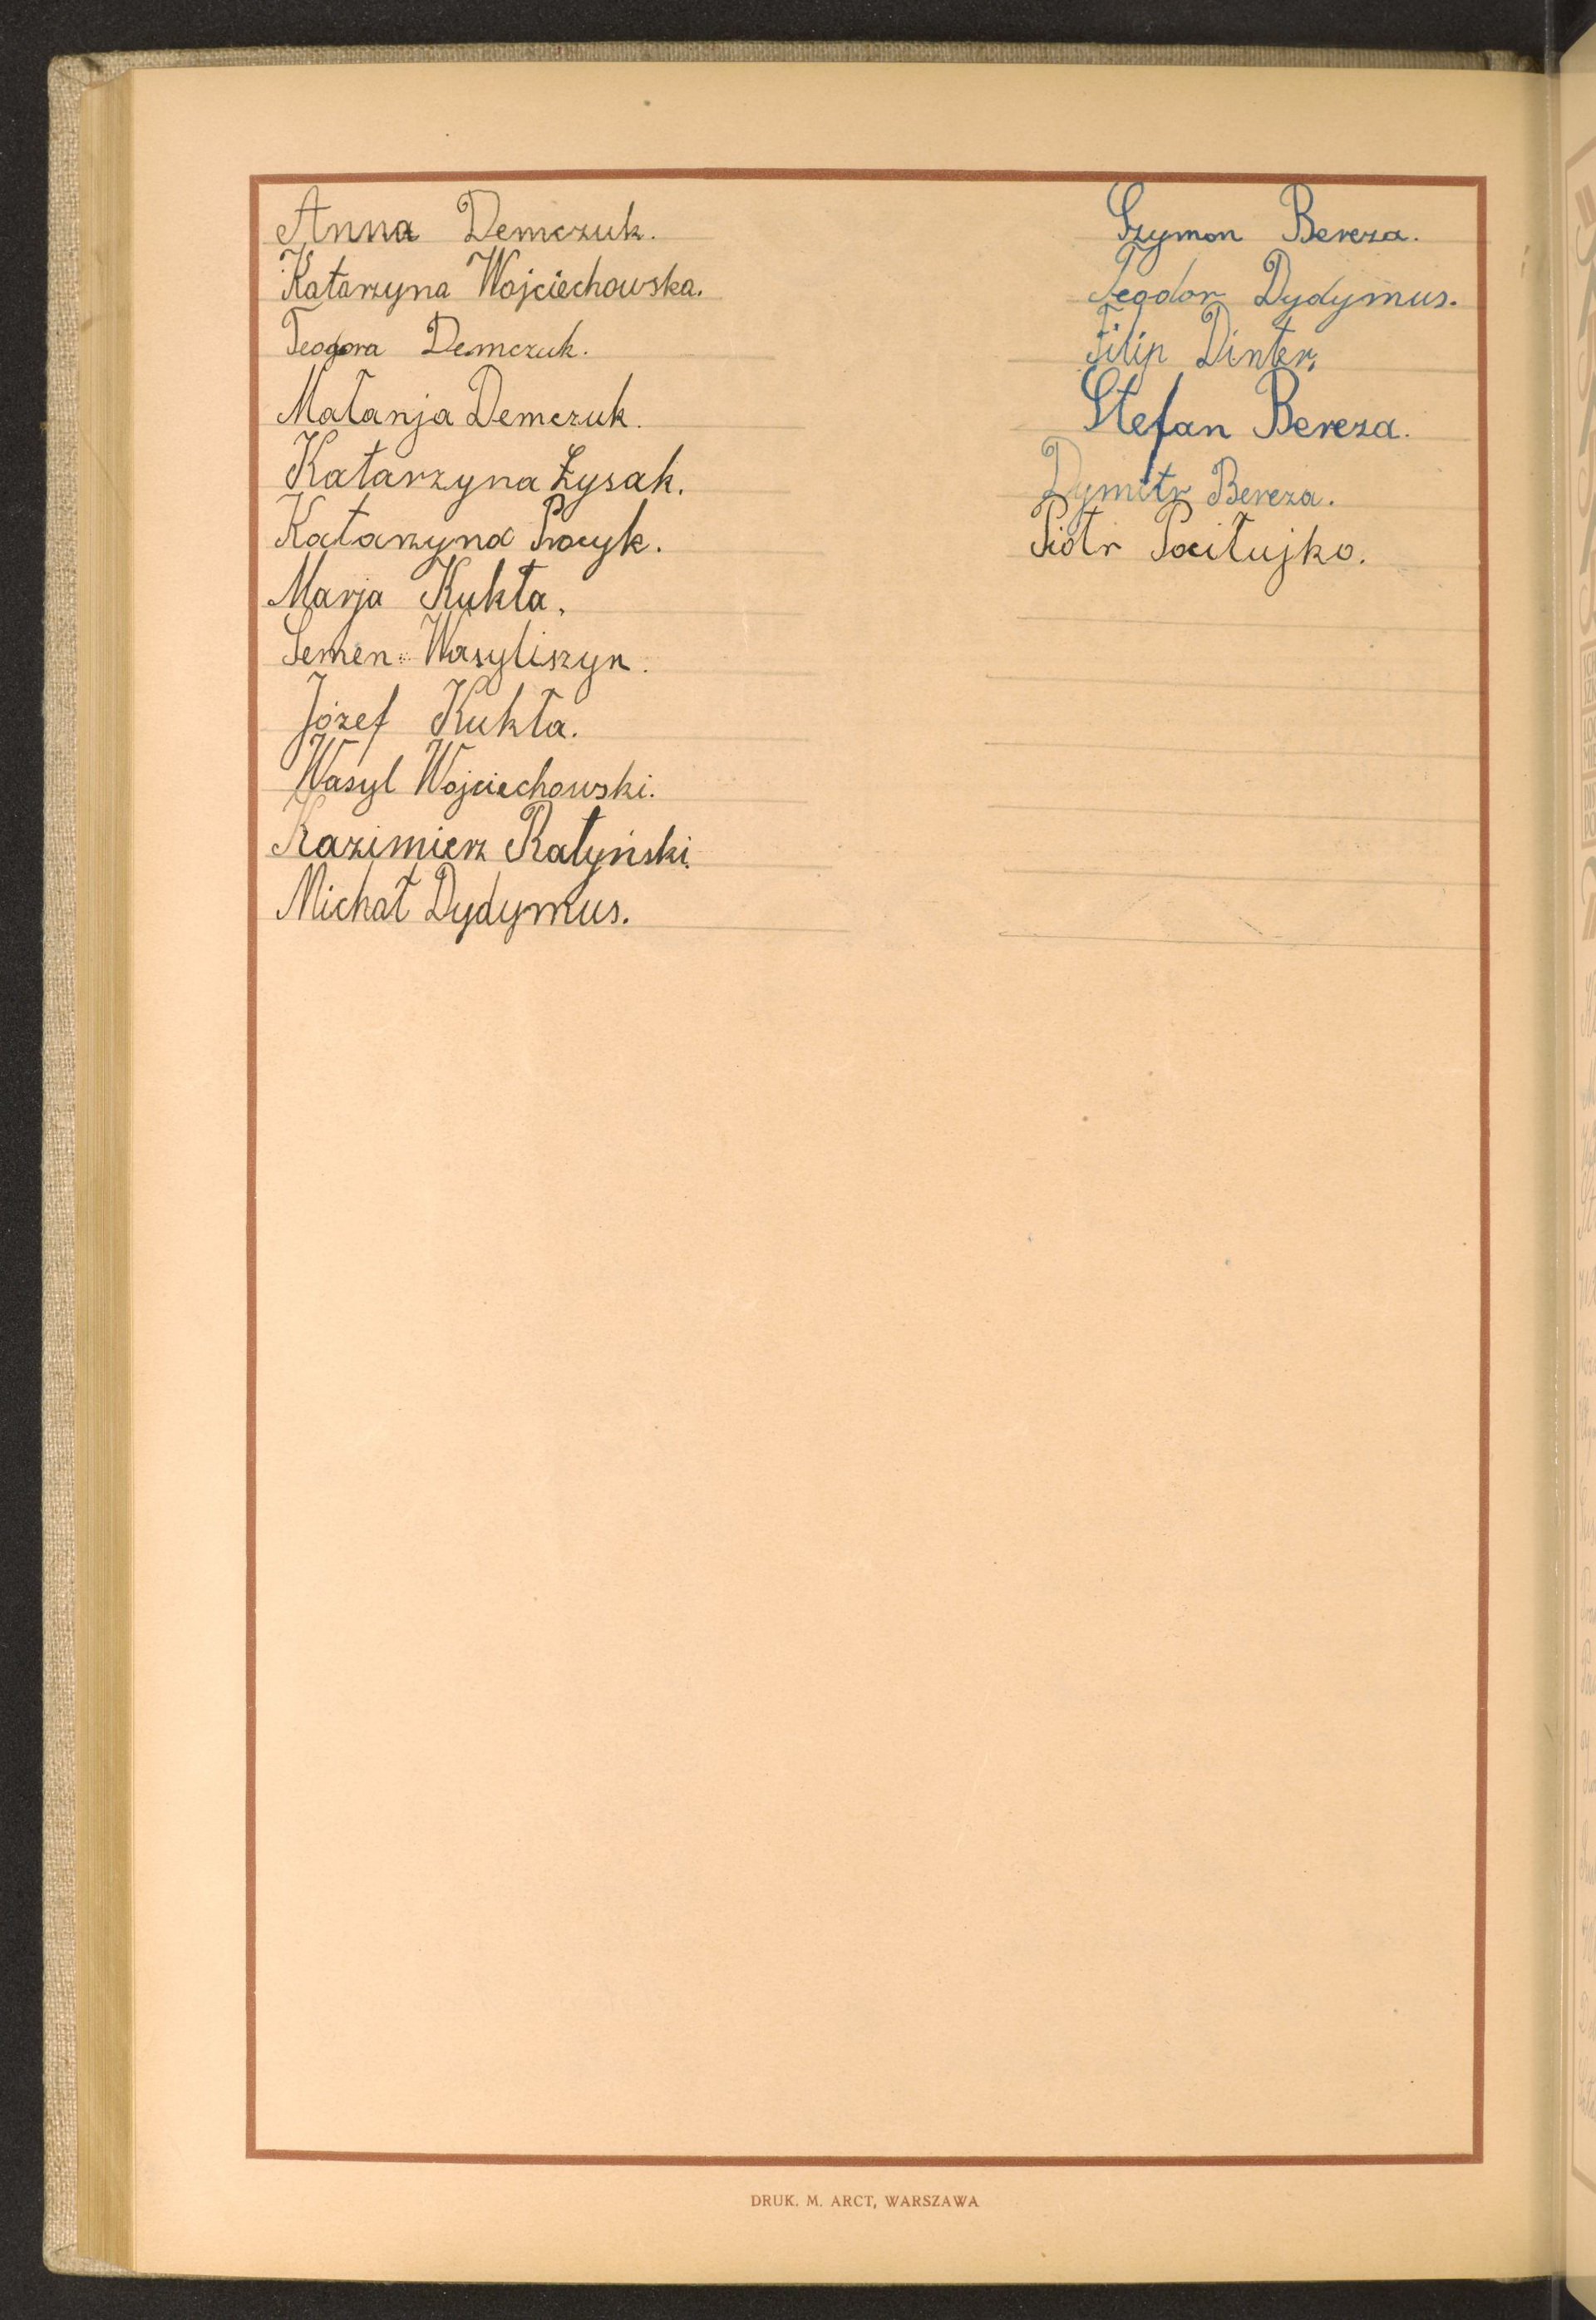 Anna Demczuk.
Katarzyna Wojciechowska.
Teodora Demczuk.
Małanja Demczuk.
Katarzyna Łysak.
Katarzyna Procyk.
Marja Kukła.
Semen Wasyliszyn.
Józef Kukła.
Wasyl Wojciechowski.
Kazimierz Ratyński.
Michał Dydymus.
Szymon Bereza.
Teodor Dydymus.
Filip Dinter.
Stefan Bereza.
Dymitr Bereza.
Piotr Pociłujko.
DRUK. M. ARCT, WARSZAWA